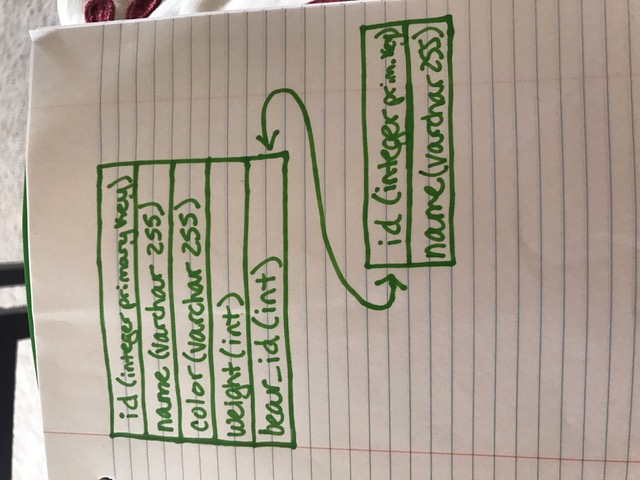 id (integer primary key)
name (varchar 255)
color (varchar 255)
weight (int)
bear_id (int)
id (integer prim. key)
name (varchar 255)